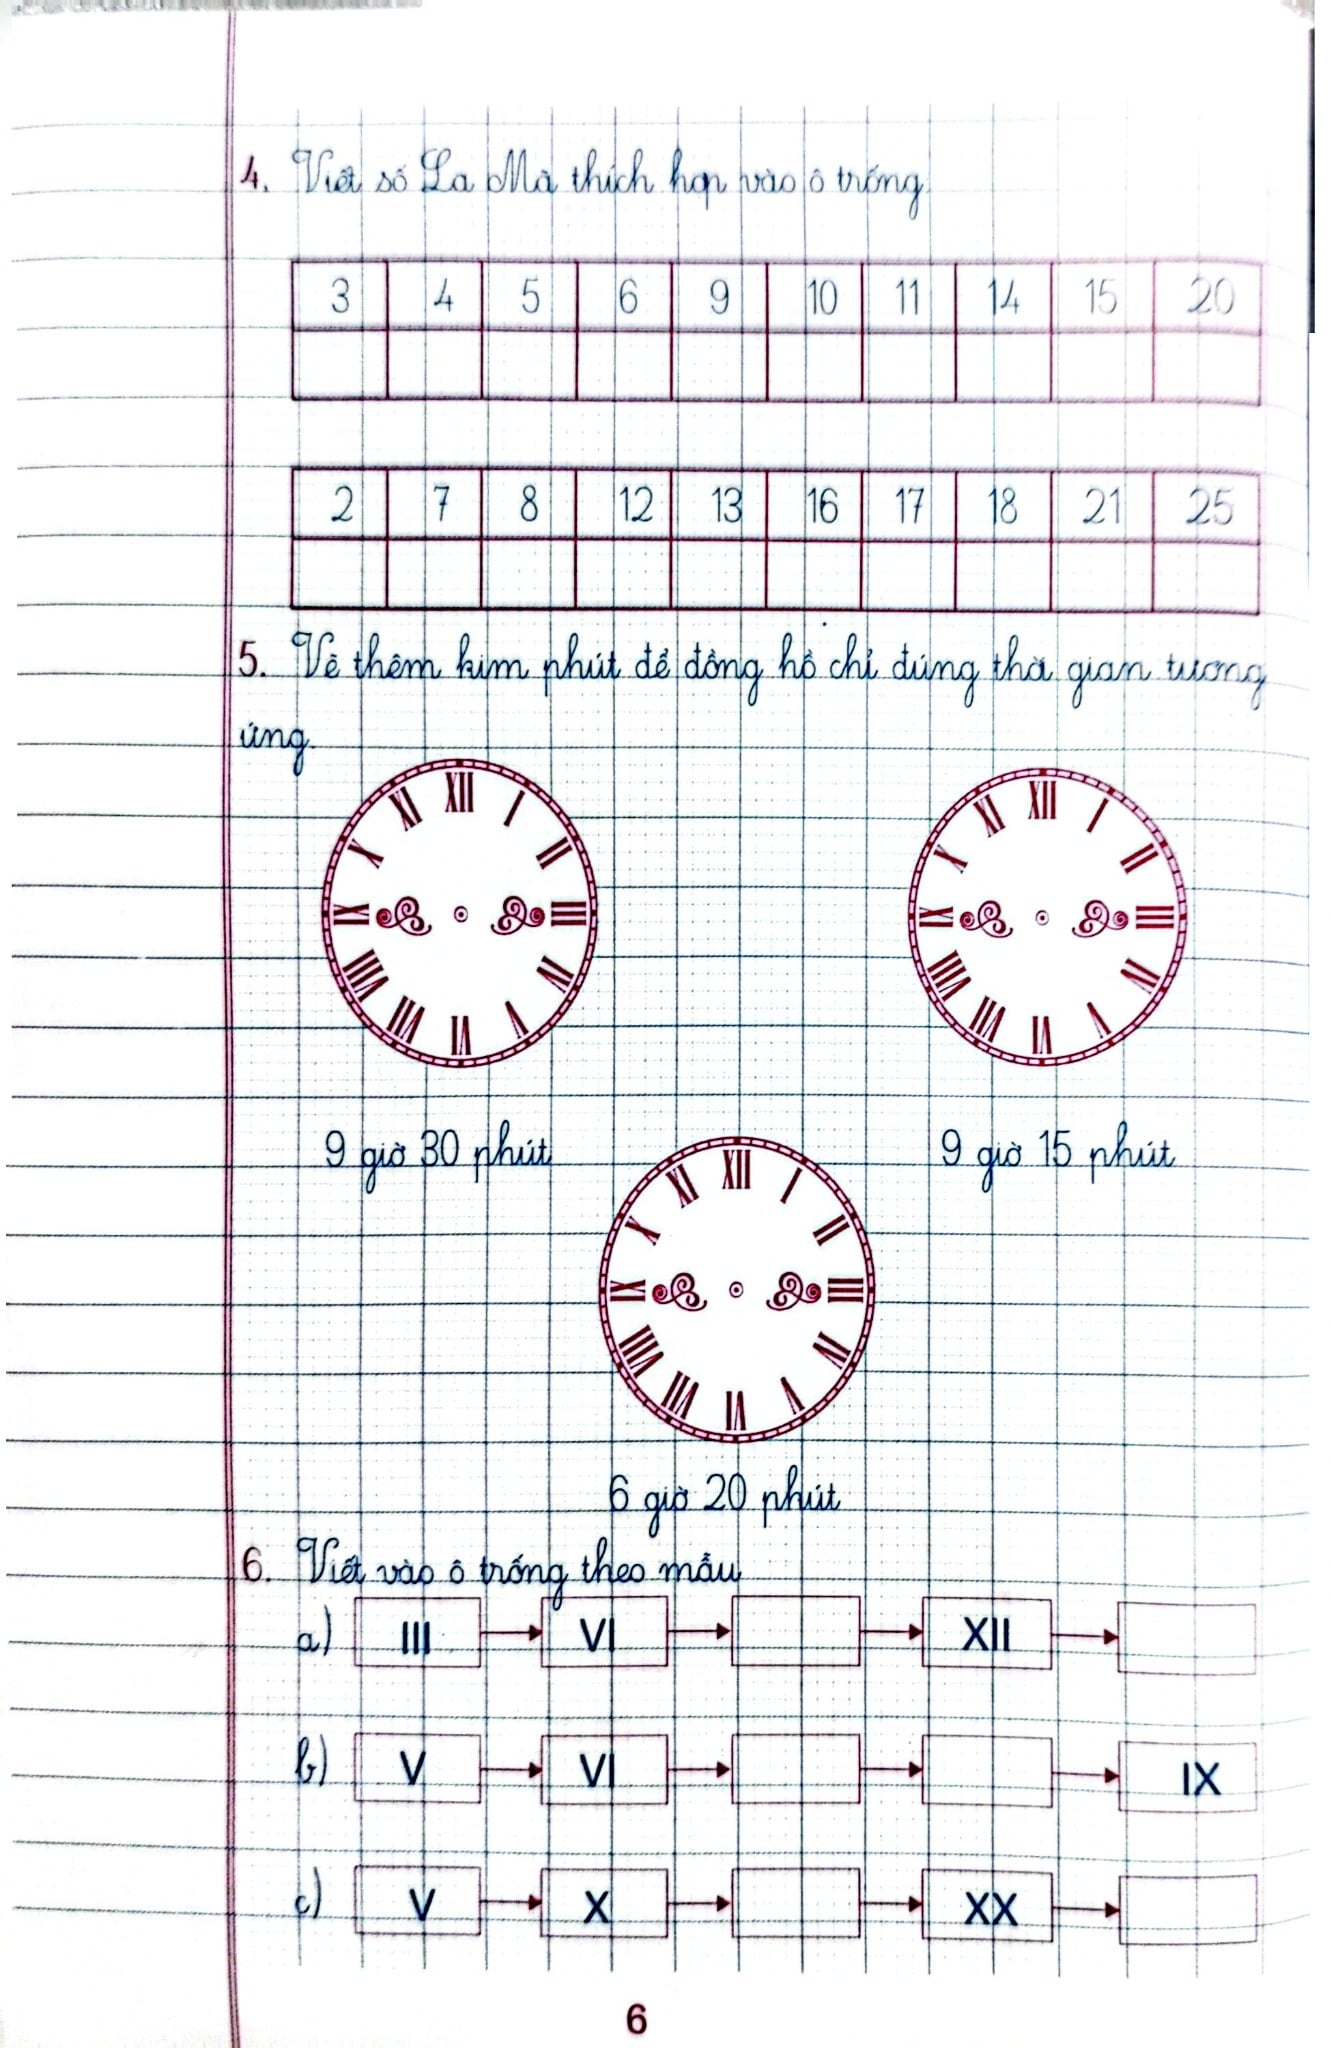 4. Viết số La Mã thích hợp vào ô trống
3 4 5 6 9 10 11 14 15 20
2 7 8 12 13 16 17 18 21 25
5. Vẽ thêm kim phút để đồng hồ chỉ đúng thời gian tương
ứng.
XII I II III IV V VI VII VIII IX X XI
XII I II III IV V VI VII VIII IX X XI
9 giờ 30 phút
9 giờ 15 phút
XII I II III IV V VI VII VIII IX X XI
6 giờ 20 phút
6. Viết vào ô trống theo mẫu
a) III VI XII
b) V VI IX
c) V X XX
6